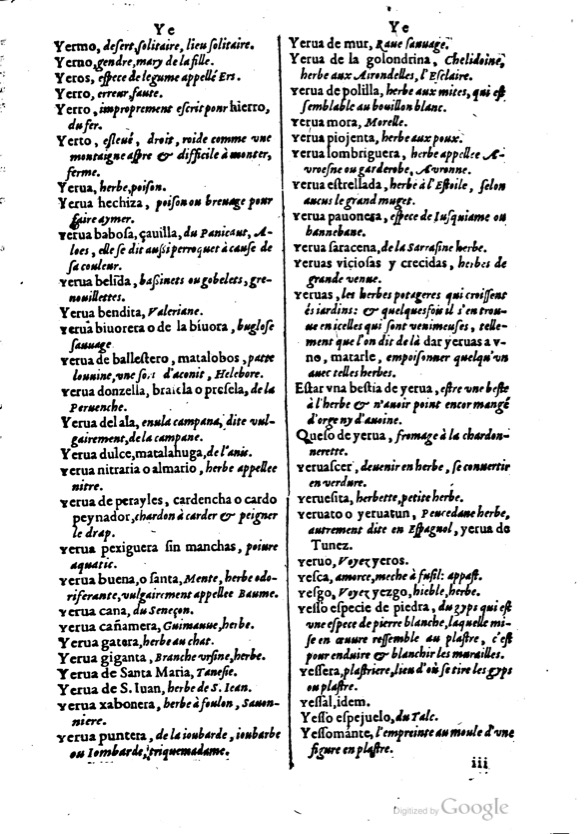 Ye
Yermo, desert, solitaire, lieu solitaire.
Yerno, gendre, mary de la fille.
Yeros, espece de legume appellé Ers.
Yerro, erreur, faute.
Yerro, improprement escrit pour hierro,
du fer.
Yerto, esleué, droit, roide comme vne
montaigne aspre & difficile à monter,
ferme.
Yerua, herbe, poison.
Yerua hechiza, poison ou breuage pour
faire aymer.
Yerua babosa, çauilla, du Panicaut, A-
loes, elle se dit aussi perroquet à cause de
sa couleur.
Yerua belida, bassinets ou gobelets, gre-
nouillettes.
Yerua bendita, Valeriane.
Yerua biuorera o de la biuora, buglose
sauuage
Yerua de ballestero, matalobos, patte
louuine, vne sort d'aconit, Helebore.
Yerua donzella, braicla o presela, de la
Peruenche.
Yerua del ala, enula campana, dite vul-
gairement, de la campane.
Yerua dulce, matalahuga, de l'anis.
Yerua nitraria o almario, herbe appellee
nitre.
Yerua de perayles, cardencha o cardo
peynador, chardon à carder & peigner
le drap.
Yerua pexiguera sin manchas, poiure
aquatic.
Yerua buena, o santa, Mente, herbe odo-
riferante, vulgairement appellee Baume.
Yerua cana, du Seneçon.
Yerua cañamera, Guimauue, herbe.
Yerua gatera, herbe au chat.
Yerua giganta, Branche vrsine, herbe.
Yerua de Santa Maria, Tanesie.
Yerua de S. Iuan, herbe de S. Iean.
Yerua xabonera, herbe à foulon, Sauon-
niere.
Yerua puntera, de la ioubarde, ioubarbe
ou Iombarde, triquemadame.
Ye
Yerua de mur, Raue sauuage.
Yerua de la golondrina, Chelidoine,
herbe aux Airondelles, l'Esclaire.
Yerua de polilla, herbe aux mites, qui est
semblable au bouillon blanc.
Yerua mora, Morelle.
Yerua piojenta, herbe aux poux.
Yerua lombriguera, herbe appellee A-
uroesne ou garderobe, Auronne.
Yerua estrellada, herbe à l'Estoile, selon
aucus le grand muget.
Yerua pauonera, espece de Iusquiame ou
bannebane.
Yerua saracena, de la Sarrasine herbe.
Yeruas viciosas y crecidas, herbes de
grande venue.
Yeruas, les herbes potageres qui croissent
és iardins: & quelquesfois il s'en trou-
ue en icelles qui sont venimeuses, telle-
ment que l'on dit de là dar yeruas a v-
no, matarle, empoisonner quelqu'vn
auec telles herbes.
Estar vna bestia de yerua, estre vne beste
à l'herbe & n'auoir point encor mangé
d'orge ny d'auoine.
Queso de yerua, fromage à la chardon-
nerette.
Yeruascer, deuenir en herbe, se conuertir
en verdure.
Yeruesita, herbette, petite herbe.
Yeruato o yeruatun, Peucedane herbe,
autrement dite en Espagnol, yerua de
Tunez.
Yeruo, Voyez yeros.
Yesca, amorce, meche à fusil: appast.
Yesgo, Voyez yezgo, hieble, herbe.
Yesso especie de piedra, du gyps qui est
vne espece de pierre blanche, laquelle mi-
se en œuure ressemble au plastre, c'est
pour enduire & blanchir les murailles.
Yessera, plastriere, lieu d'où se tire les gyps
ou plastre.
Yessal, idem.
Yesso espejuelo, du Talc.
Yessomante, l'empreinte au moule d'vne
figure en plastre.
iii
Digitized by Google